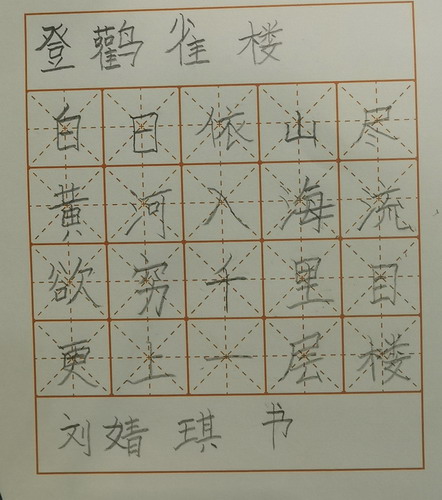 登鹳雀楼
白日依山尽
黄河入海流
欲穷千里目
更上一层楼
刘婧琪 书